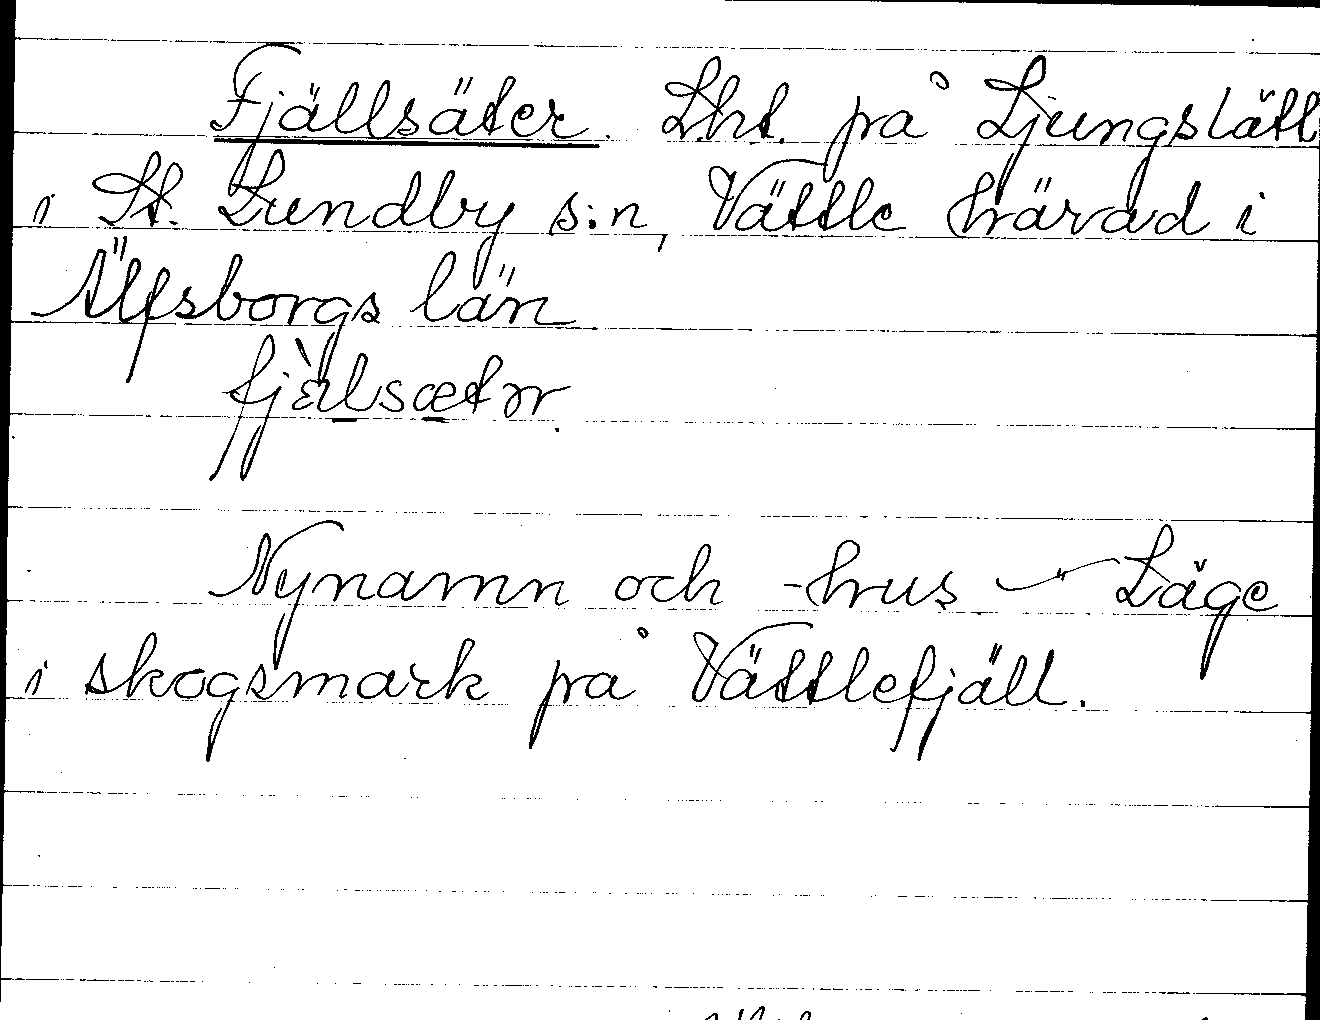 Fjällsäter. Lht. på Ljungslätt
i St. Lundby s:n, Vättle härad i
Älfsborgs län
fjæ̀lsætər.
Nynamn och -hus – Läge
i skogsmark på Vättlefjäll.